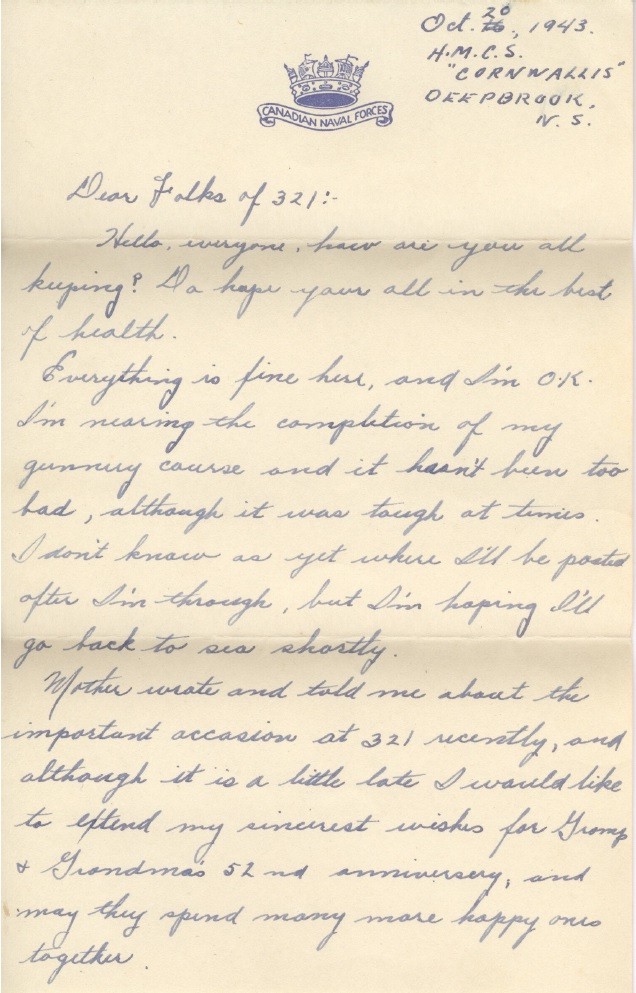 Oct. 20, 1943.
H.M.C.S.
"CORNWALLIS"
DEEPBROOK,
N. S.
CANADIAN NAVAL FORCES
Dear Folks of 321:-
Hello, everyone, how are you all
keeping? Do hope your all in the best
of health.
Everything is fine here, and I'm O.K.
I'm nearing the completion of my
gunnery course and it hasn't been too
bad, although it was tough at times.
I don't know as yet where I'll be posted
after I'm through, but I'm hoping I'll
go back to sea shortly.
Mother wrote and told me about the
important occasion at 321 recently, and
although it is a little late I would like
to extend my sincerest wishes for Gramp
& Grandma's 52nd anniversery, and
may they spend many more happy ones
together.